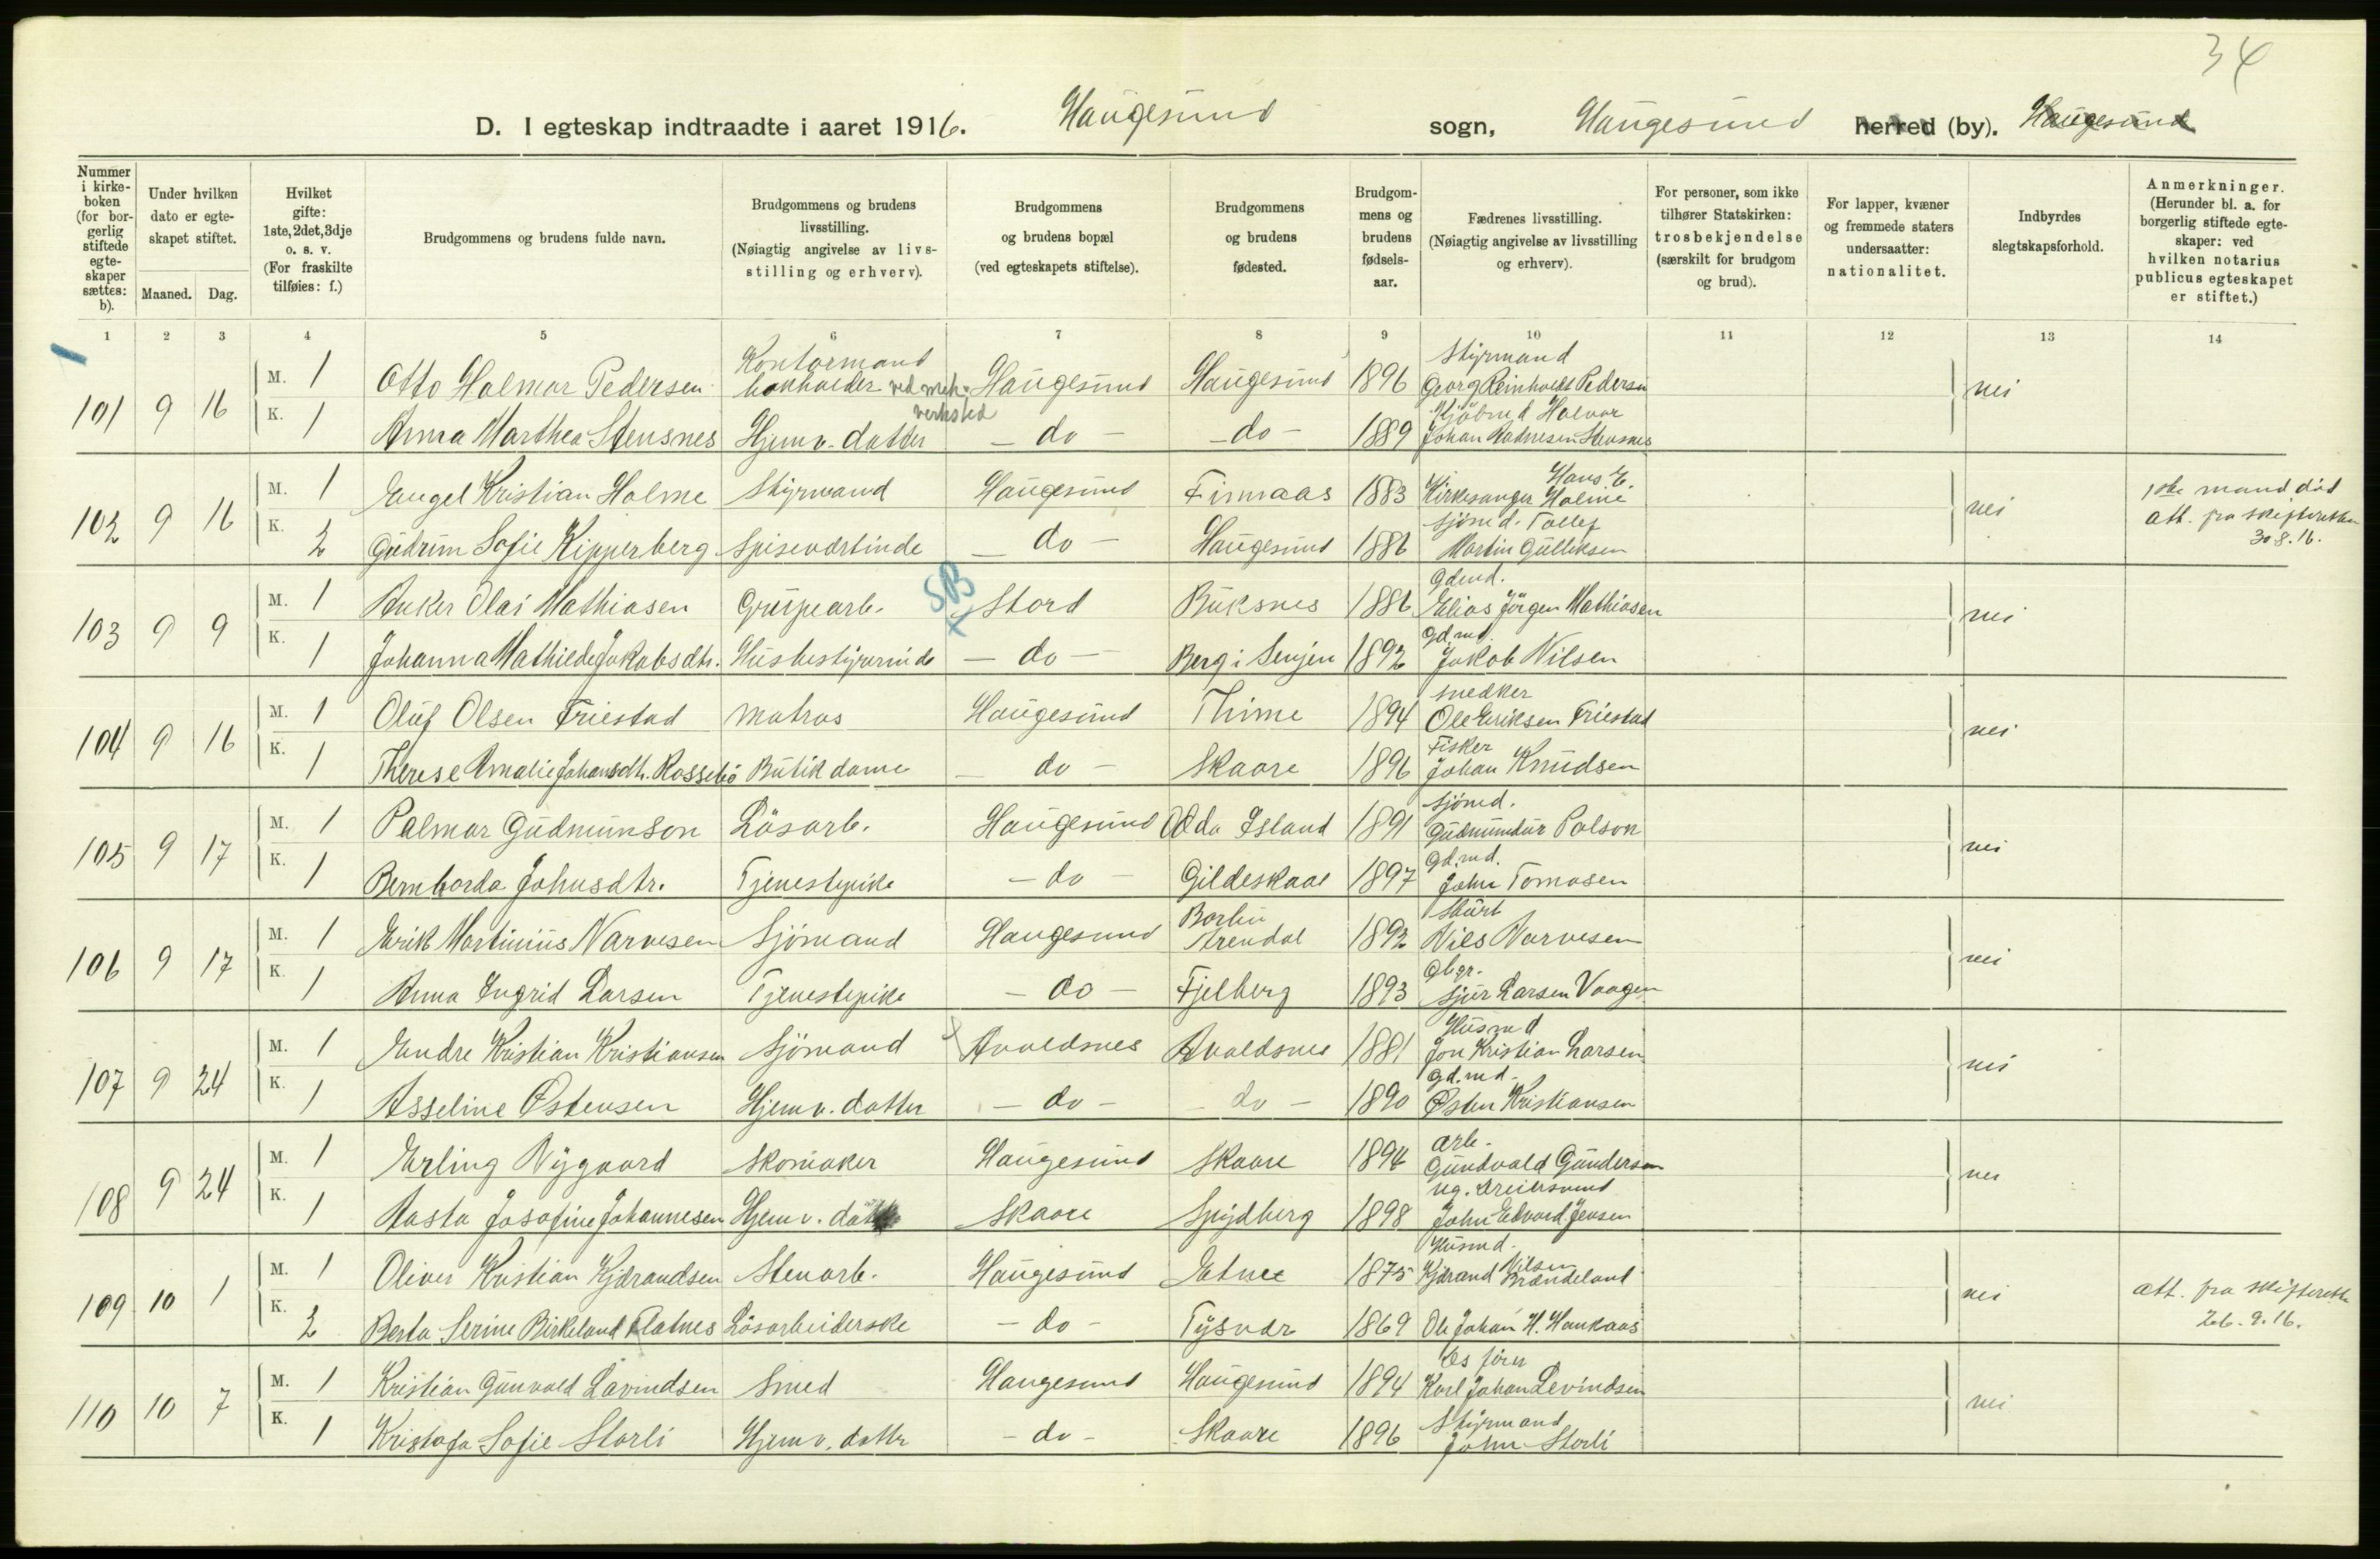 34
D. I egteskap indtraadte i aaret 1916. Haugesund sogn, Haugesund herred (by). Haugesund
Nummer i kirkeboken (for borgerlig stiftede egteskaper sættes: b).
Under hvilken dato er egteskapet stiftet.
Maaned. Dag.
Hvilket gifte: 1ste, 2det, 3dje o. s. v. (For fraskilte tilføies: f.)
Brudgommens og brudens fulde navn.
Brudgommens og brudens livsstilling. (Nøiagtig angivelse av livsstilling og erhverv).
Brudgommens og brudens bopæl (ved egteskapets stiftelse).
Brudgommens og brudens fødested.
Brudgommens og brudens fødselsaar.
Fædrenes livsstilling. (Nøiagtig angivelse av livsstilling og erhverv).
For personer, som ikke tilhører Statskirken: trosbekjendelse (særskilt for brudgom og brud).
For lapper, kvæner og fremmede staters undersaatter: nationalitet.
Indbyrdes slegtskapsforhold.
Anmerkninger. (Herunder bl. a. for borgerlig stiftede egteskaper: ved hvilken notarius publicus egteskapet er stiftet.)
1 2 3 4 5 6 7 8 9 10 11 12 13 14
Kontormand Styrmand
101 9 16 M. 1 Otto Holmar Pedersen ved mek. Haugesund Haugesund 1896 Georg Reinholdt Pedersen nei
verksted Kjöbmd Halvor
K. 1 Anna Marthea Stensnes Hjemv. datter - do - - do - 1889 Johan Stensnes
Hans E.
102 9 16 M. 1 Engel Kristian Holme Styrmand Haugesund Finnaas 1883 Kirkesanger Holme nei 1ste mand död
Sjömd. Tollef att. fra skifteretten
K. 2 Gudrun Sofie Kipperberg Spiseværtinde - do - Haugesund 1886 Martin Gulliksen 30.8.16.
SB Gdmd.
103 9 9 M. 1 Anker Olai Mathiasen Grupearb. x Stord Buksnes 1886 Elias Jörgen Mathiasen nei
Gd.md.
K. 1 Johanna Mathilde Jakobsdtr. Husbestyrerinde - do - Berg i Senjen 1892 Jakob Nilsen
Snedker
104 9 16 M. 1 Oluf Olsen Friestad Matros Haugesund Thime 1894 Ole Eriksen Friestad nei
Fisker
K. 1 Therese Amalie Johansdtr. Rossebö Butikdame - do - Skaare 1896 Johan Knudsen
Sjömd.
105 9 17 M. 1 Palmar Gudmunson Lösarb. Haugesund Odda Island 1891 Gudmundur Palson nei
Gd.md.
K. 1 Bernharda Johnsdtr. Tjenestepike - do - Gildeskaal 1897 John Tomasen
Barbu Skurt
106 9 17 M. 1 Erik Martinius Narvesen Sjömand Haugesund Arendal 1892 Nils Narvesen nei
Gbgr.
K. 1 Anna Ingrid Larsen Tjenestepike - do - Fjelberg 1893 Sjur Larsen Vaagen
Husmd
107 9 24 M. 1 Endre Kristian Kristiansen Sjömand Avaldsnes Avaldsnes 1881 Jon Kristian Larsen nei
Gd.md.
K. 1 Asseline Østensen Hjemv. datter - do - - do - 1890 Østen Kristiansen
Arb.
108 9 24 M. 1 Erling Nygaard Skomaker Haugesund Skaare 1894 Gundvald Gundersen nei
K. 1 Aasta Josofine Johannesen Hjemv. datter Skaare Spydberg 1898 John Edvard Jensen
Husmd.
109 10 1 M. 1 Oliver Kristian Kjærandsen Stenarb. Haugesund Etnee 1875 Kjærand Nilsen Brændeland nei att. fra skifteretten
K. 2 Berta Serine Birkeland Flatnes Lösarbeiderske - do - Tysvær 1869 Ole Johan H. Haukaas 26.9.16.
110 10 7 M. 1 Kristian Gunvald Lavindsen Smed Haugesund Haugesund 1894 Karl Johan Levindsen nei
Styrmand
K. 1 Kristofa Sofie Storli Hjemv. datter - do - Skaare 1896 John Storli